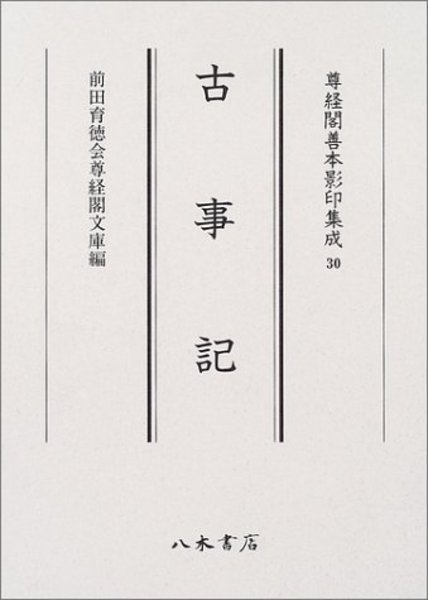 尊経閣善本影印集成 30
古事記
前田育徳会尊経閣文庫編
八木書店